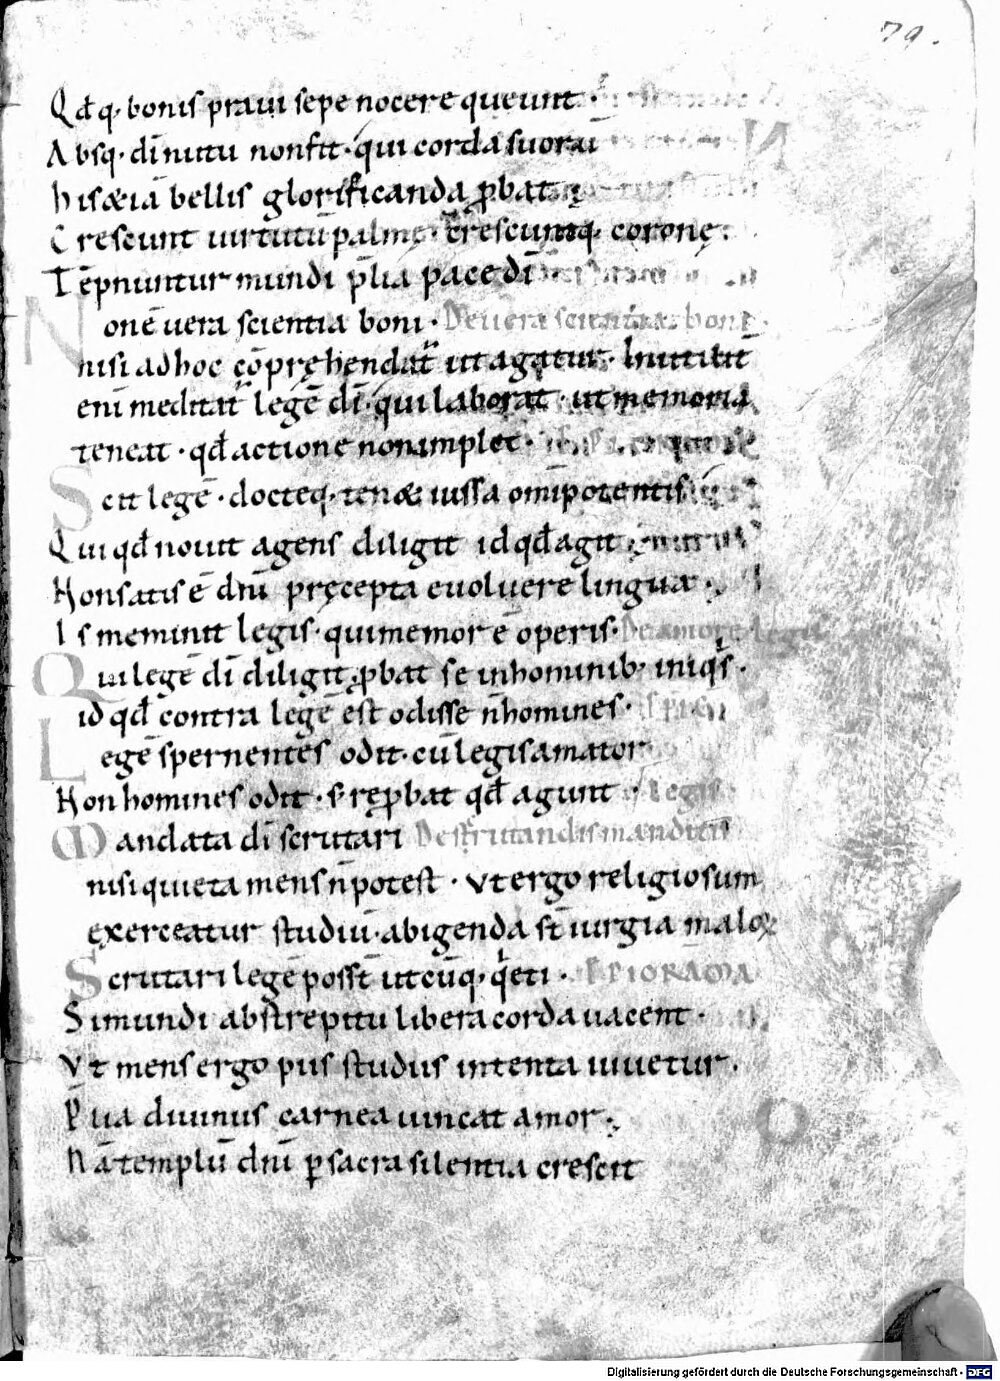 79.
Qđq· bonis praui sepe nocere queunt·
Absq· dī nutu non fit· qui corda suorū
his &iā bellis glorificanda ꝓbat·
Crescunt uirtutū palmę· crescuntq· coronę·
Tēpnuntur mundi p̄lia pace dī
Non ē uera scientia boni· De uera scientia boni·
nisi ad hoc cōpręhendat̄ ut agatur· Inutilit̄
enī meditat̄ legē dī· qui laborat· ut memoria
teneat· qđ actione non implet·
Scit legē· docteq· ten& iussa omīpotentis
Qui qđ nouit agens diligit id qđ agit
Non satis ē dn̄i pręcepta euoluere lingua·
Is meminit legis· qui memor ē operis· De amore legis
Qui legē dī diligit ꝓbat se in hominib; iniq̄s·
id qđ contra legē est odisse n̄ homines·
Legē spernentes odit· cū legis amator
Non homines odit· s; reꝓbat qđ agunt· legis
Mandata dī scrutari De scrutandis mandatis
nisi quieta mens n̄ potest· Vt ergo religiosum
exerceatur studiū· abigenda st̄ iurgia maloꝝ
Scrutari legē posst̄ utcūq· q̄eti· EPIGRAMA
Si mundi abstrepitu libera corda uacent·
Vt mens ergo piis studiis intenta iuuetur·
Praua diuinus carnea uincat amor·
Nā templū dn̄i ꝑ sacra silentia crescit
Digitalisierung gefördert durch die Deutsche Forschungsgemeinschaft · DFG